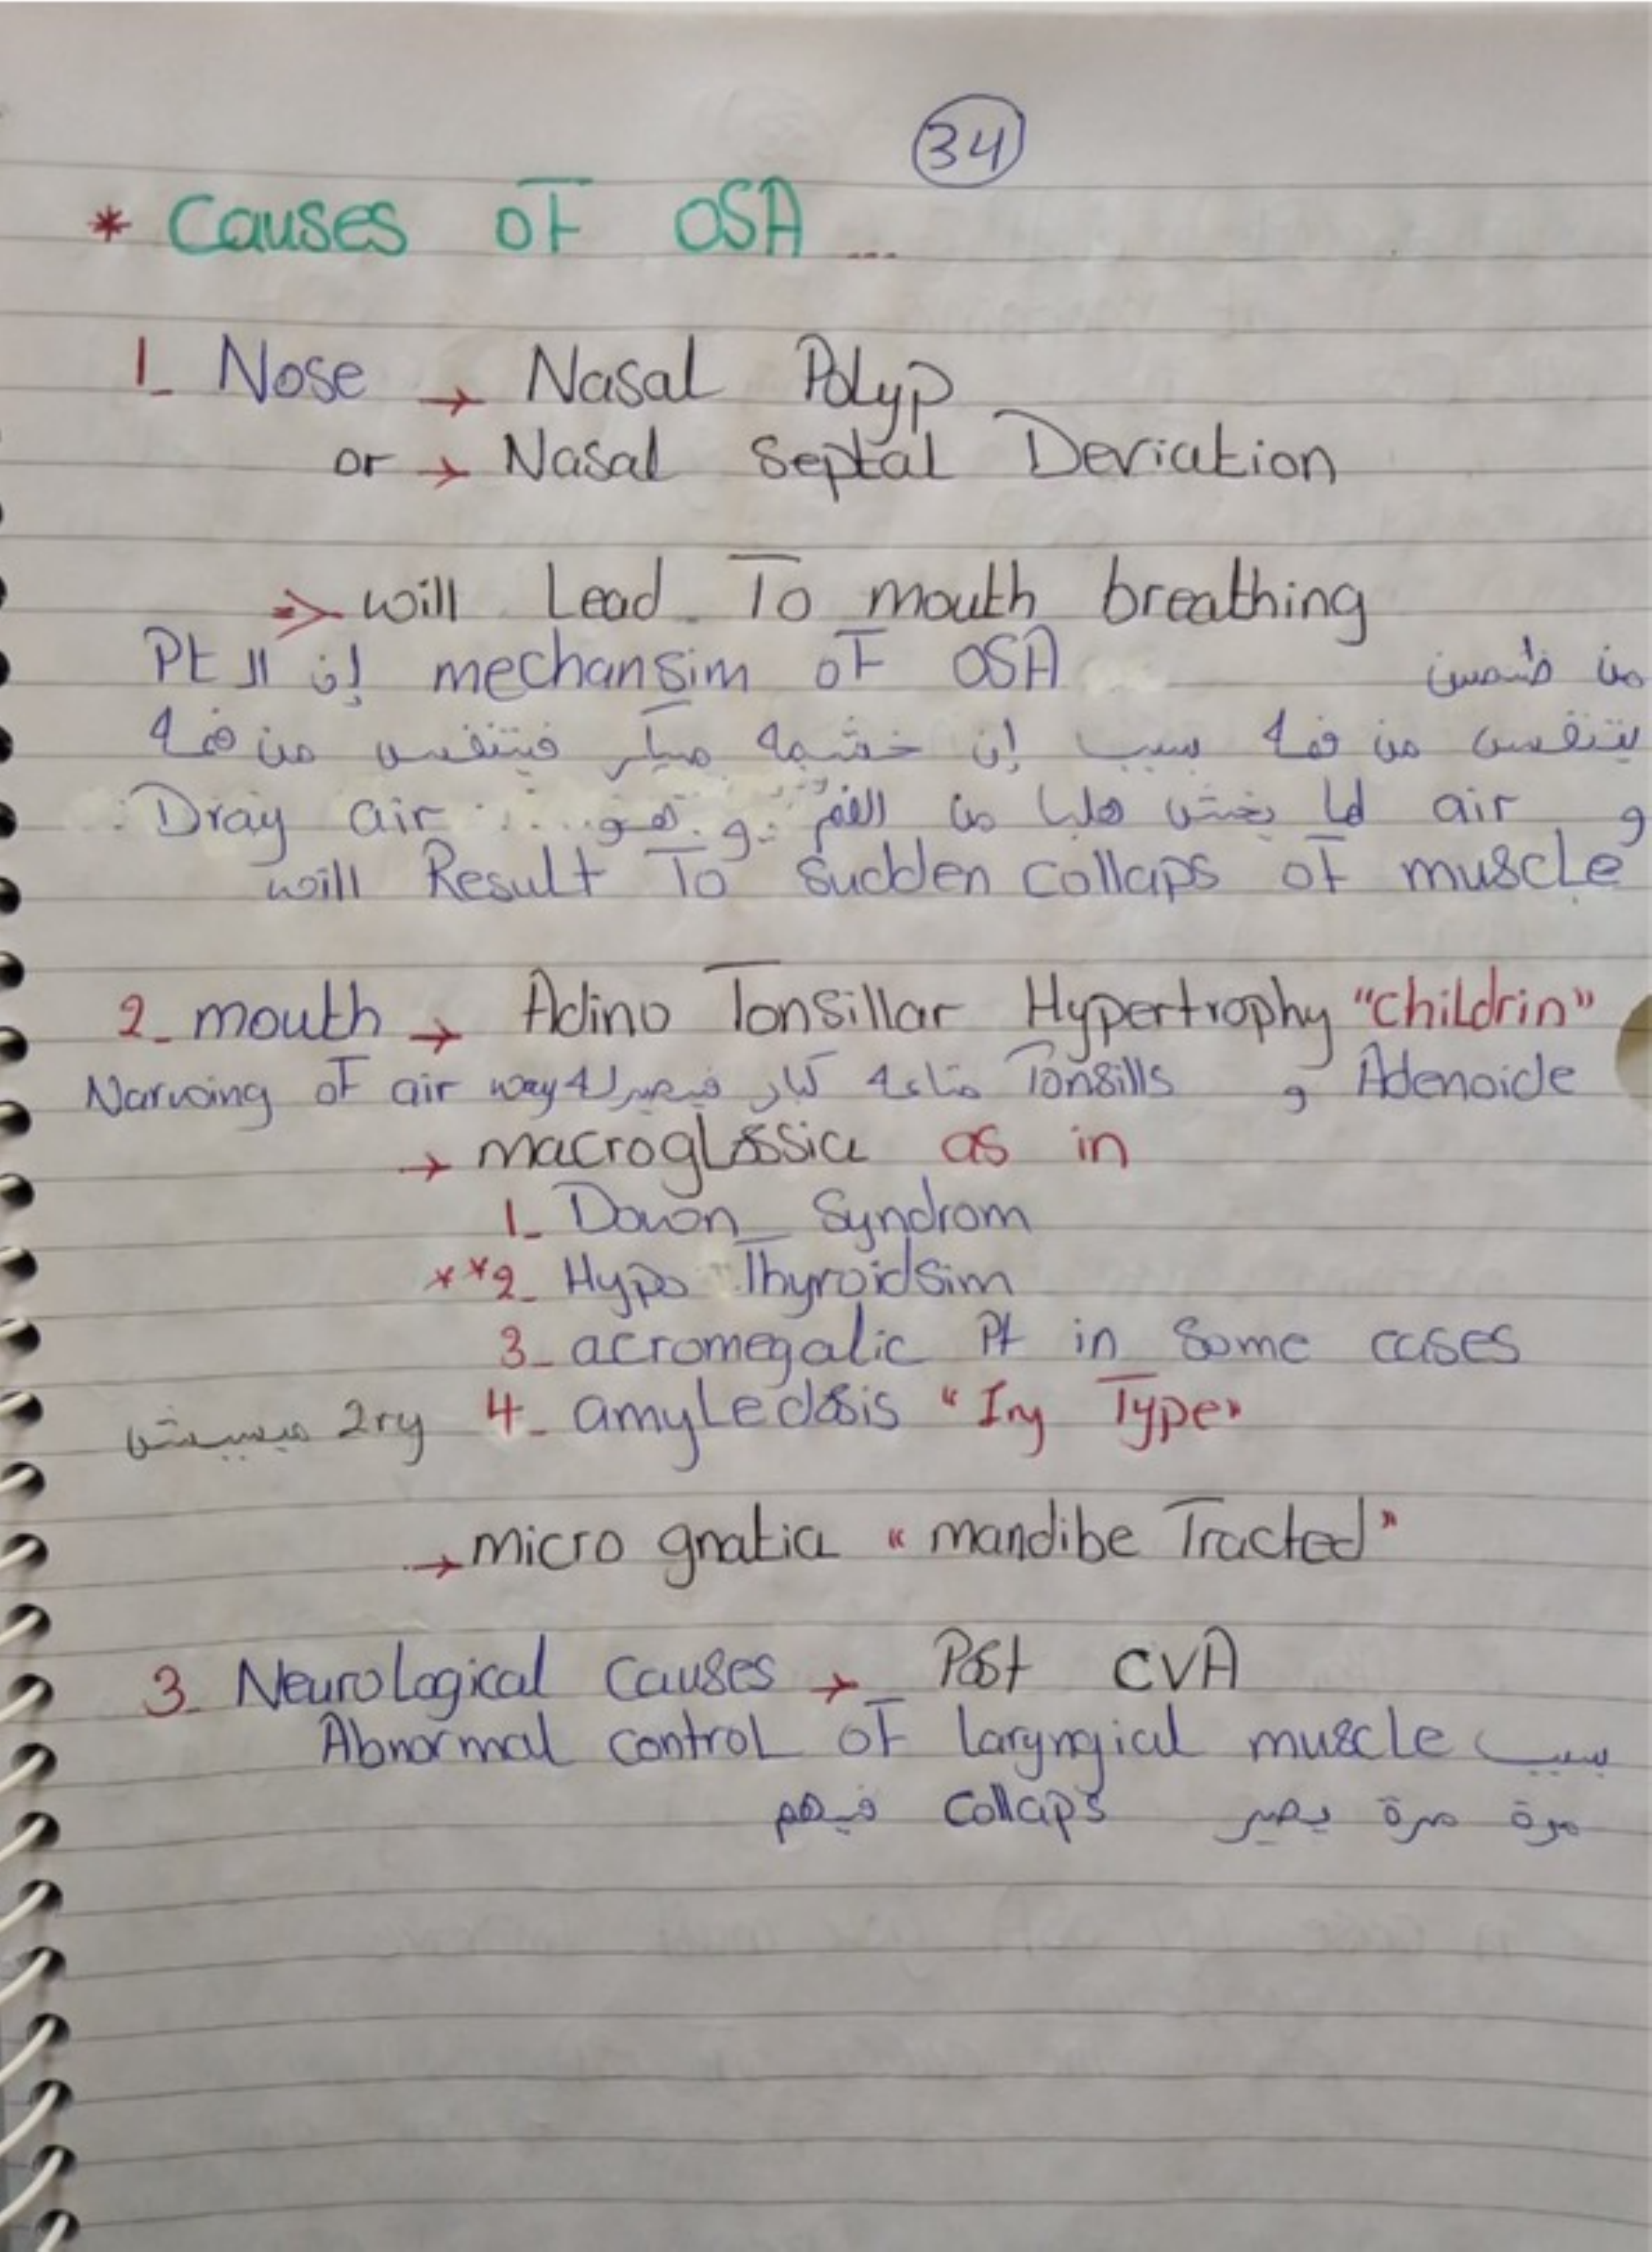 34
* Causes of OSA ...
1_ Nose → Nasal Polyp
or → Nasal Septal Deviation
⇒ will Lead To mouth breathing
من ضمن mechansim of OSA إن الـ Pt
يتنفس من فمه سبب إن خشمه مسكر فيتنفس من فمه
و air لما يخش هلبا من الفم و هو Dray air
will Result To sudden collaps of muscle
2_ mouth → Adino Tonsillar Hypertrophy "childrin"
Adenoide و Tonsills متاعه كبار فيصيرله Narwoing of air way
→ macroglossia as in
1_ Down Syndrom
**2_ Hypo Thyroidsim
3_ acromegalic Pt in some cases
4_ amyledosis "Iry Type" 2ry ميسببش
→ micro gnatia "mandibe Tracted"
3_ Neurological causes → Post CVA
Abnormal control of laryngical muscle سبب
مرة مرة يصير collaps فيهم